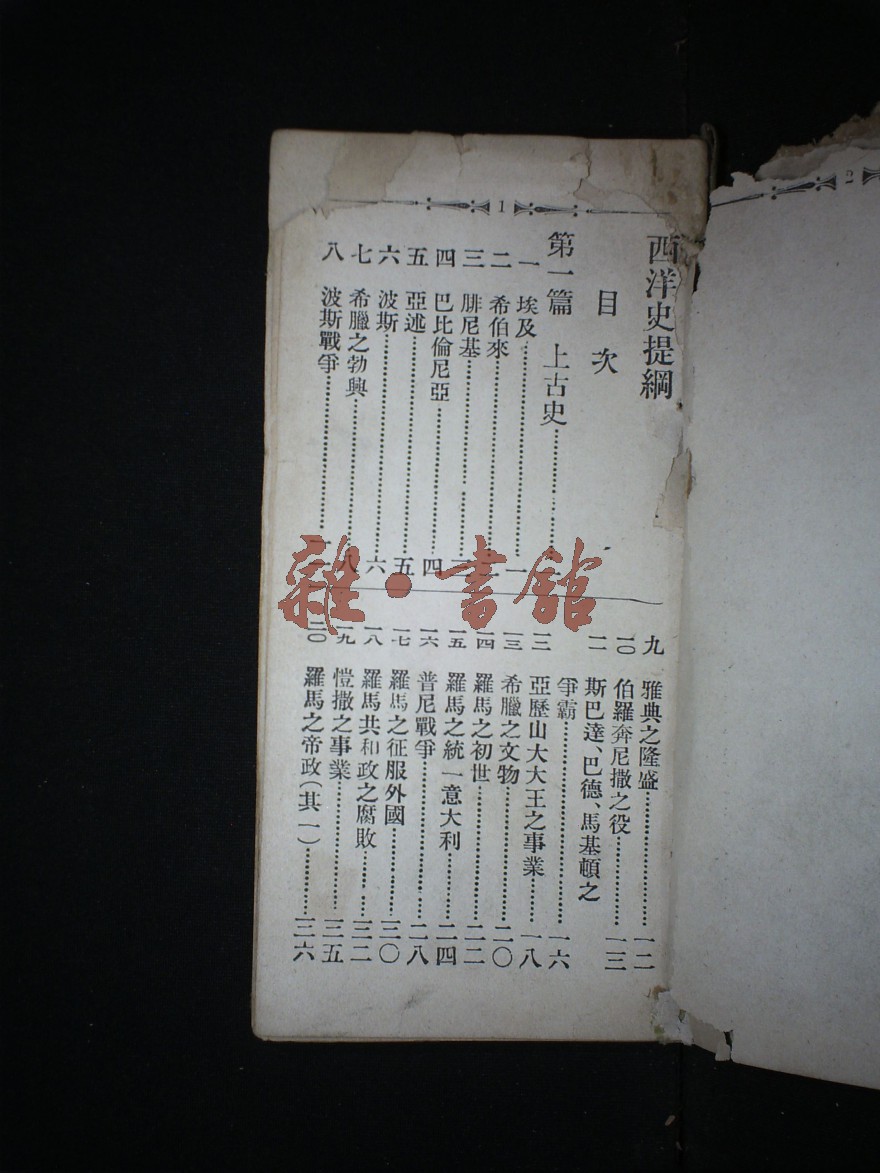 2
1
西洋史提綱
目次
第一篇 上古史
一 埃及 一
二 希伯來
三 腓尼基
四 巴比倫尼亞 四
五 亞述 五
六 波斯 六
七 希臘之勃興 八
八 波斯戰爭
九 雅典之隆盛 一二
一〇 伯羅奔尼撒之役 一三
一一 斯巴達、巴德、馬基頓之
爭霸 一六
一二 亞歷山大大王之事業 一八
一三 希臘之文物 二〇
一四 羅馬之初世 二二
一五 羅馬之統一意大利 二四
一六 普尼戰爭 二八
一七 羅馬之征服外國 三〇
一八 羅馬共和政之腐敗 三二
一九 愷撒之事業 三五
二〇 羅馬之帝政(其一) 三六
雜·書館